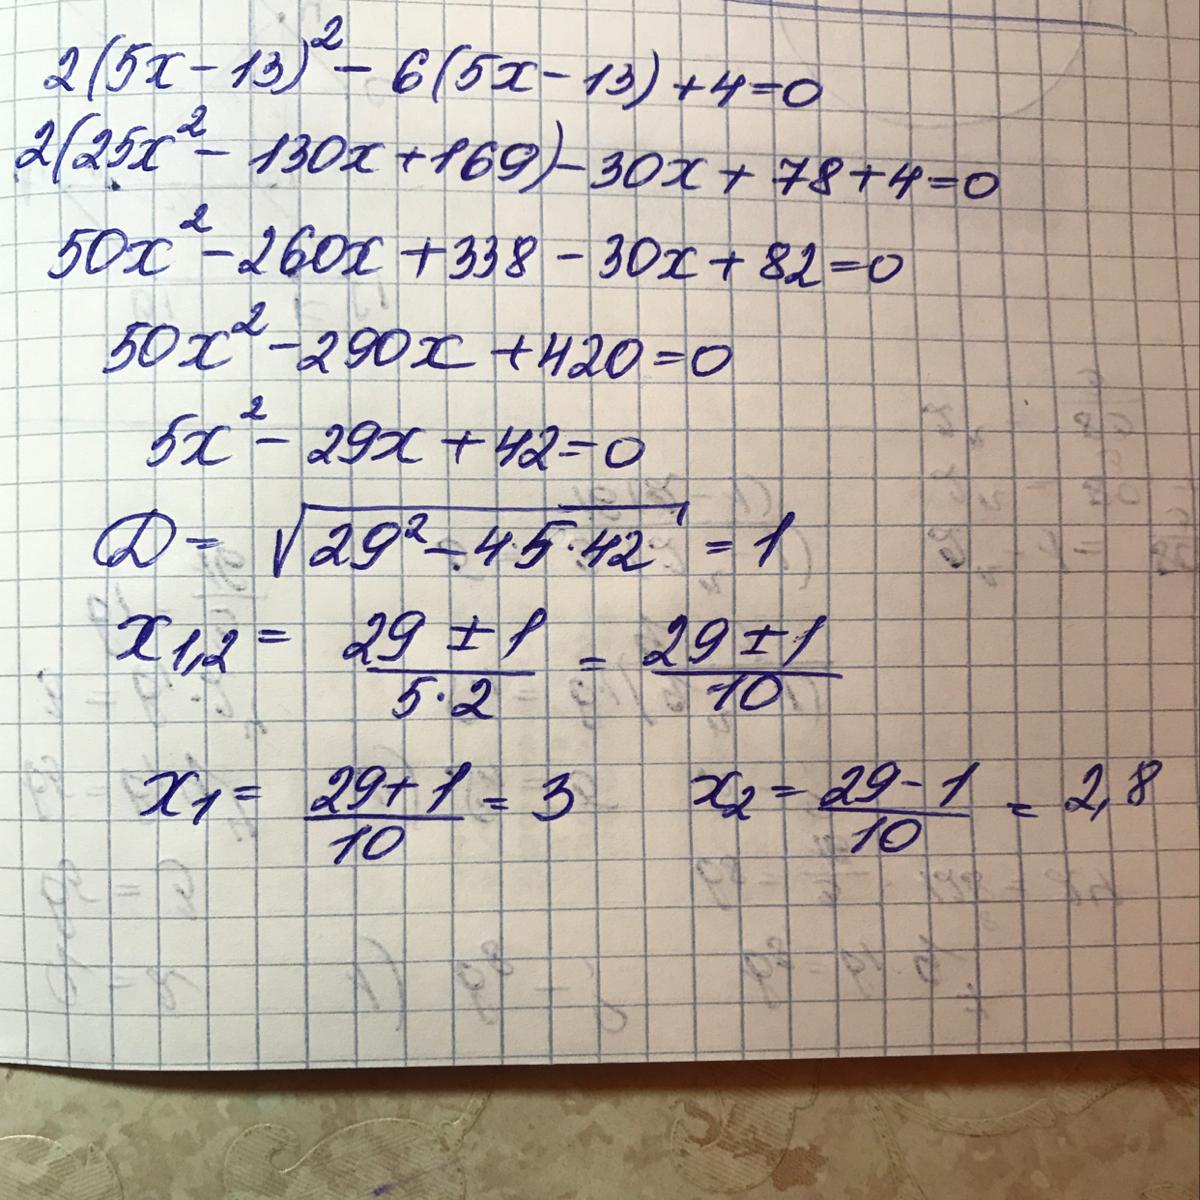 2(5x-13)²-6(5x-13)+4=0
2(25x²-130x+169)-30x+78+4=0
50x²-260x+338-30x+82=0
50x²-290x+420=0
5x²-29x+42=0
D=√(29²-4·5·42)=1
x₁,₂=(29±1)/(5·2)=(29±1)/10
x₁=(29+1)/10=3 x₂=(29-1)/10=2,8